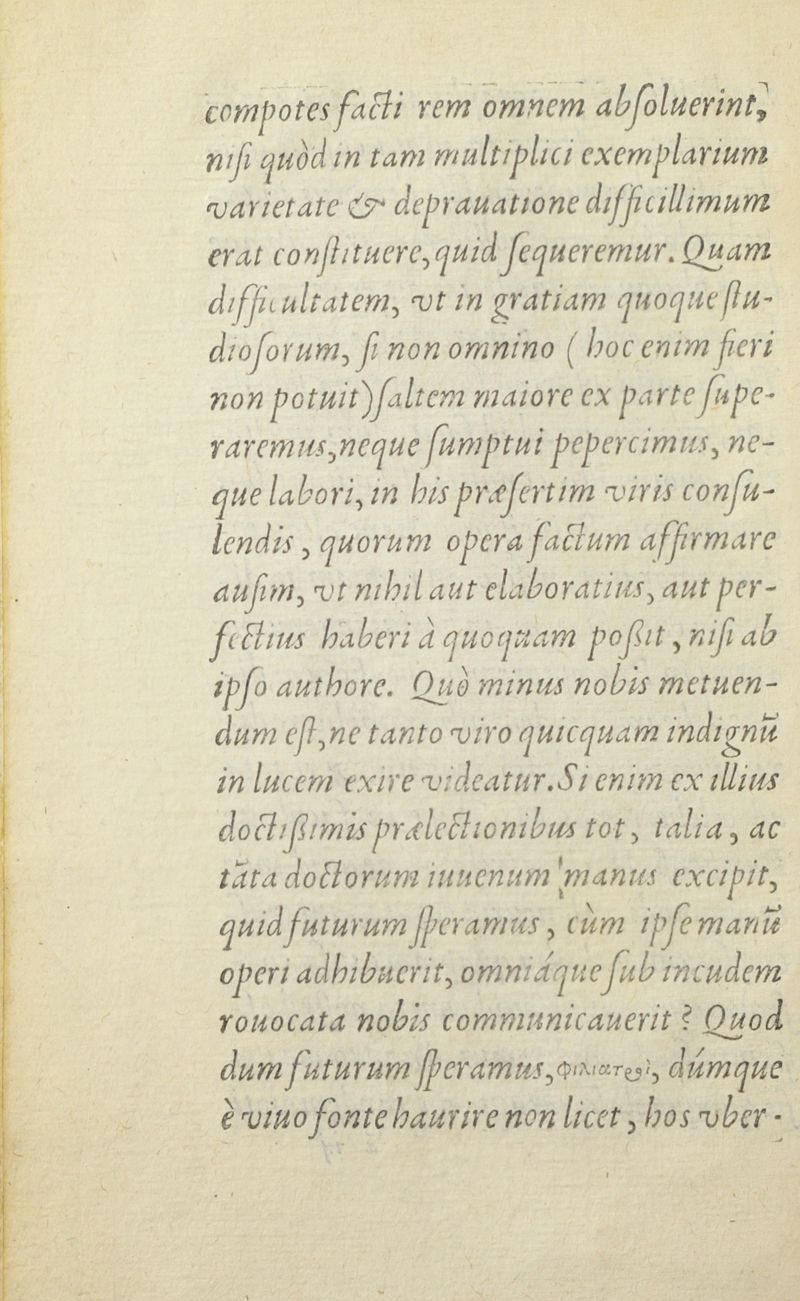 compotes facti rem omnem abſoluerint,
niſi quòd in tam multiplici exemplarium
varietate & deprauatione difficillimum
erat conſtituere, quid ſequeremur. Quam
difficultatem, vt in gratiam quoque ſtu-
dioſorum, ſi non omnino ( hoc enim fieri
non potuit) ſaltem maiore ex parte ſupe-
raremus, neque ſumptui pepercimus, ne-
que labori, in his præſertim viris conſu-
lendis, quorum opera factum affirmare
auſim, vt nihil aut elaboratius, aut per-
fectius haberi à quoquam poßit, niſi ab
ipſo authore. Quò minus nobis metuen-
dum eſt, ne tanto viro quicquam indignũ
in lucem exire videatur. Si enim ex illius
doctißimis prælectionibus tot, talia, ac
tãta doctorum iuuenum manus excipit,
quid futurum ſperamus, cùm ipſe manũ
operi adhibuerit, omniáque ſub incudem
rouocata nobis communicauerit ? Quod
dum futurum ſperamus, φιλιατροὶ, dúmque
è viuo fonte haurire non licet, hos vber-